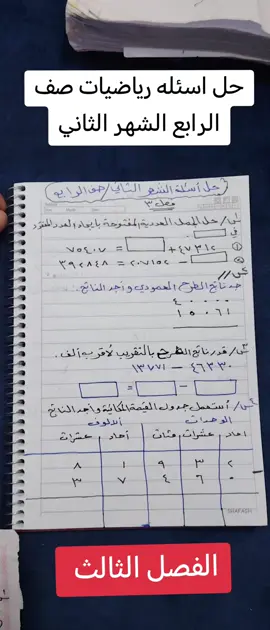 حل اسئله رياضيات صف
الرابع الشهر الثاني
حل أسئلة الشهر الثاني / صف الرابع
فصل ٣
س١/ حل الجمل العددية المفتوحة بايجاد العدد المفقود
في
① ٤٧٣١٢ + = ٧٥٤٠٧
② - ٢٠٧١٥٢ = ٣٩٢٨٤٨
س٢//
جد ناتج الطرح العمودي و أجد الناتج.
٤٠٠٠٠
١٥٠٦١
س٣/ قدر ناتج الطرح بالتقريب لأقرب ألف.
٤٦٣٣٠ - ١٣٧٧١
- =
س٤/ أستعمل جدول القيمة المكانية و أجد الناتج
الوحدات الألوف
احاد عشرات مئات أحاد عشرات
٢ ٣ ٩ ١ ٨
٠ ٦ ٤ ٧ ٣
SHAFAEK
الفصل الثالث